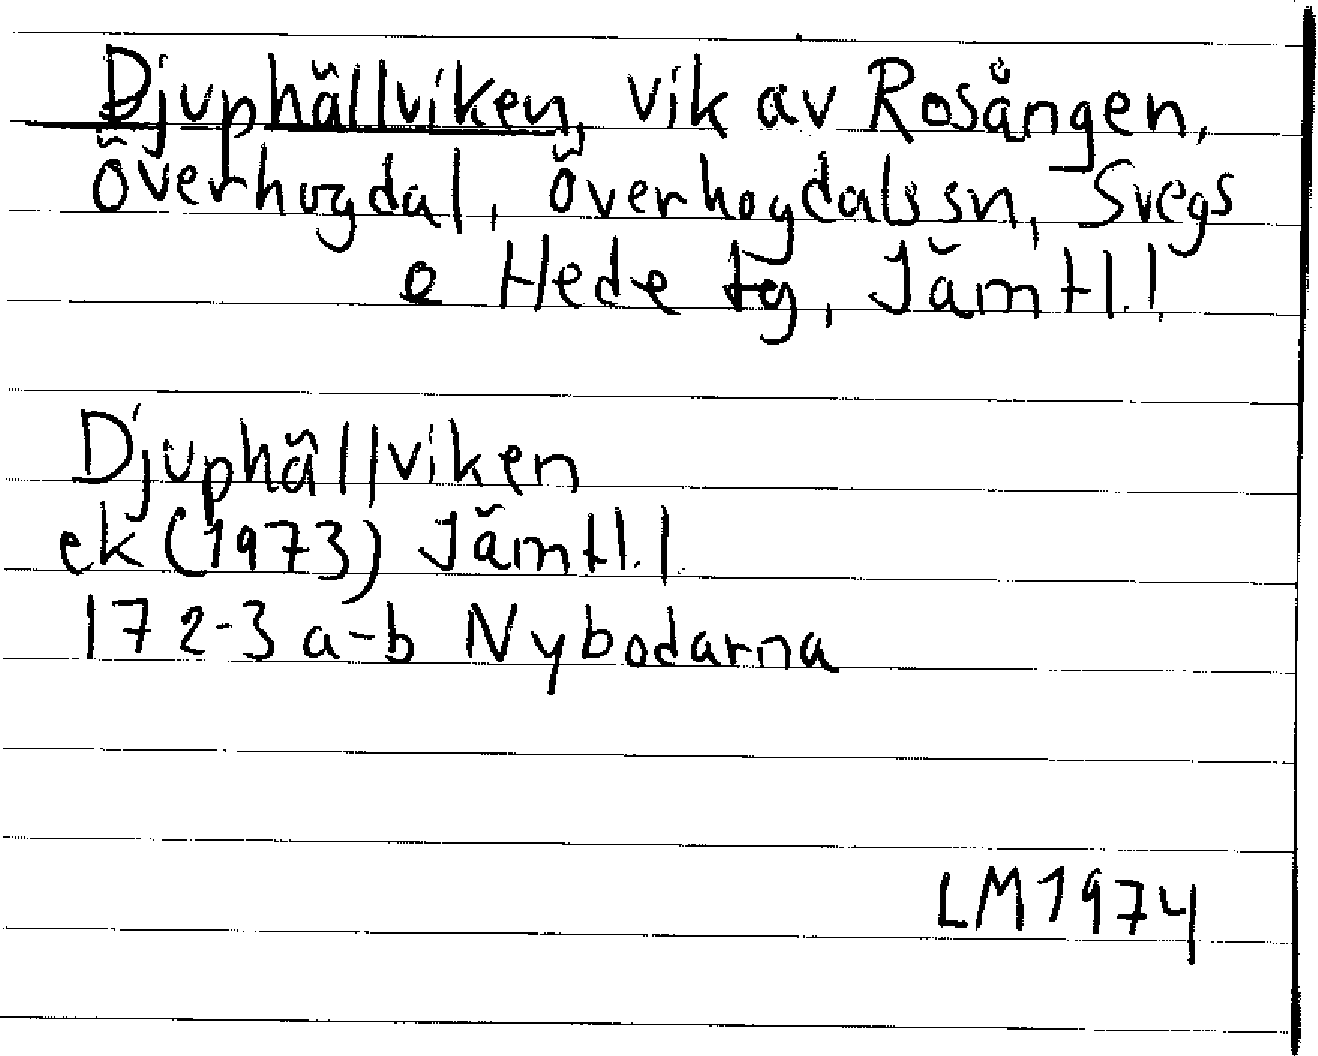 Djuphällviken, vik av Rosången,
Överhogdal, Överhogdals sn, Svegs
o Hede tg, Jämtl. l
Djuphällviken
ek (1973) Jämtl. l
172-3 a-b Nybodarna
LM 1974